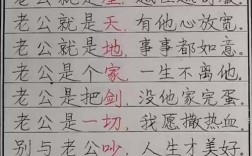 老公就是天，有他心放宽。
老公就是地，事事都如意。
老公是个家，一生不离他。
老公是把剑，没他家完蛋。
老公是一切，我愿撒热血
别与老公吵，人生才美好。